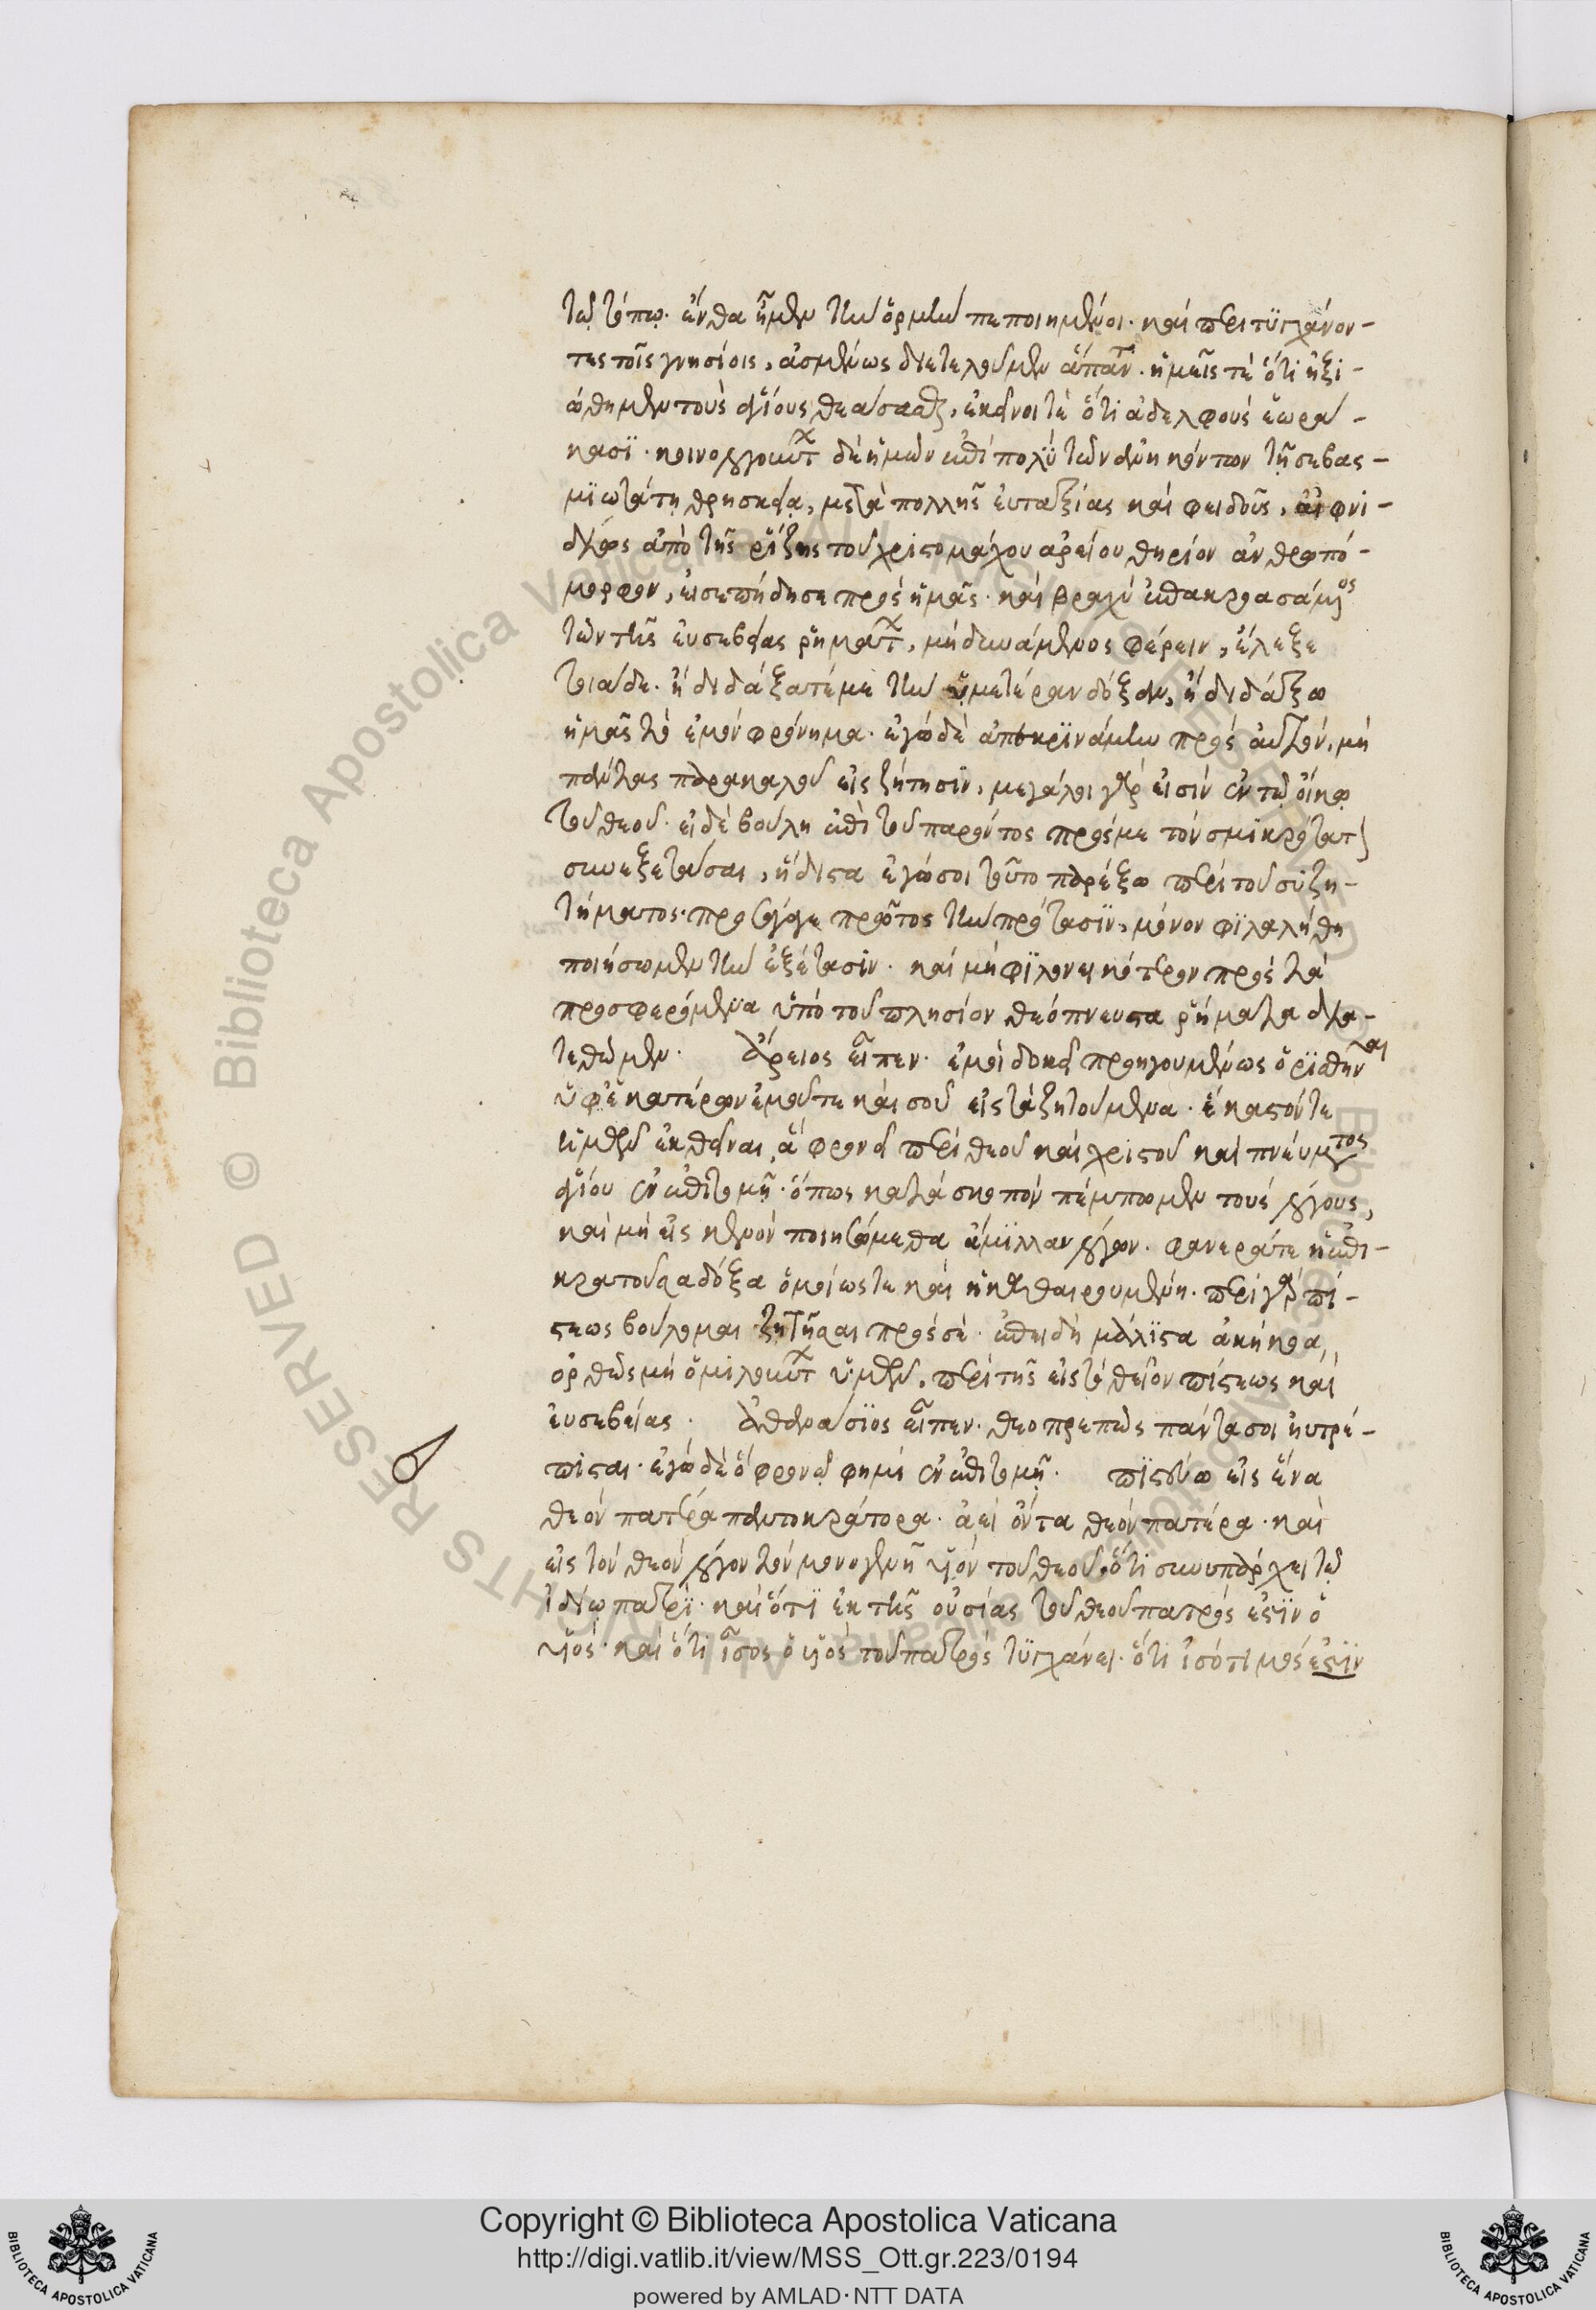 τῷ τόπῳ. ἔνθα ἦμεν τὴν ὁρμὴν πεποιημένοι. καὶ περιτϋγχάνον-
τες τοῖς γνησίοις, ἀσμένως διετελοῦμεν ἅπαντ. ἡμεῖς τὲ ὅτι ἠξι-
ώθημεν τοὺς ἁγίους θεάσασθαι, ἐκεῖνοι τὲ ὅτι ἀδελφοὺς ἑωρά-
κασϊ. κοινολογουντ δὲ ἡμῶν ἐπιπολὺ τῶν ἀνηκόντων τῇ σεβασ-
μϊωτάτῃ θρησκείᾳ, μετὰ πολλῆς εὐταξίας καὶ φειδοῦς, αἰφνι-
δίως ἀπὸ τῆς ῥίζης τοῦ χριστομάχου ἀρείου θηρίον ἀνθρωπό-
μορφον, εἰσεπήδησε πρὸς ἡμᾶς. καὶ βραχὺ ἐπακροασάμενος
τῶν τῆς εὐσεβείας ῥημάτ, μὴ δυνάμενος φέρειν, ἔλεξε
τοιάδε. ἢ διδάξατέ με τὴν ὑμετέραν δόξαν, ἢ διδάξω
ἡμᾶς τὸ ἐμὸν φρόνημα. ἐγὼ δὲ ἀπεκρϊνάμην πρὸς αὐτὸν, μὴ
πάντας παρακαλοῦ εἰς ζήτησϊν, μεγάλοι γάρ εἰσὶν ἐν τῷ οἴκῳ
τοῦ θεοῦ. εἰ δὲ βούλη ἐπὶ τοῦ παρόντος πρός με τὸν σμικρότατ
συνεξετάσαι, ἥδιστα ἐγώ σοι τοῦτο παρέξω περὶ τοῦ συζη-
τήματος. προσάγαγε πρῶτος τὴν πρότασϊν, μόνον φϊλαλήθη
ποιήσωμεν τὴν ἐξέτασιν. καὶ μὴ φϊλονεικότερον πρὸς τὰ
προσφερόμενα ὑπὸ τοῦ πλησίον θεόπνευστα ῥήματα δια-
τεθῶμεν. Ἄρειος εἶπεν. ἐμοὶ δοκεῖ προηγουμένως ὁρϊσθῆναι
ὑφ' ἑκατέρων ἐμοῦ τε καὶ σοῦ εἰς τὰ ζητούμενα. ἕκαστόν τε
ἡμῶν ἐκθεῖναι, ἃ φρονεῖ περὶ θεοῦ καὶ χριστοῦ καὶ πνεύματος
ἁγίου ἐν ἐπιτομῇ. ὅπως κατὰ σκοπὸν πέμπωμεν τοὺς λόγους,
καὶ μὴ εἰς κενὸν ποιησώμεθα ἅμϊλλαν λόγων. φανερά τε ἡ ἐπι-
κρατοῦσα δόξα ὁμοίως τε καὶ ἡ καθαιρουμένη. περὶ γὰρ πί-
στεως βούλομαι ζητῆσαι πρὸς σὲ. ἐπειδὴ μάλϊστα ἀκήκοα,
ὀρθῶς μὴ ὁμιλουντ ὑμῶν, περὶ τῆς εἰς τὸ θεῖον πίστεως καὶ
εὐσεβείας. Ἀθανάσϊος εἶπεν. θεοπρεπῶς πάντα σοι ηὐτρέ-
πισται. ἐγὼ δὲ ὃ φρονῶ φημὶ ἐν ἐπιτομῇ. πϊστεύω εἰς ἕνα
θεὸν πατέρα παντοκράτορα. ἀεὶ ὄντα θεὸν πατέρα. καὶ
εἰς τὸν θεὸν λόγον τὸν μονογενῆ υἱὸν τοῦ θεοῦ. ὅτι συνυπάρχει τῷ
ἰδίῳ πατρϊ. καὶ ὅτϊ ἐκ τῆς οὐσίας τοῦ θεοῦ πατρός ἐστϊν ὁ
υἱός. καὶ ὅτι ἶσος ὁ υἱὸς τοῦ πατρὸς τϋγχάνει. ὅτι ἰσότιμός ἐστϊν
Copyright © Biblioteca Apostolica Vaticana
http://digi.vatlib.it/view/MSS_Ott.gr.223/0194
powered by AMLAD·NTT DATA
BIBLIOTECA APOSTOLICA VATICANA
BIBLIOTECA APOSTOLICA VATICANA